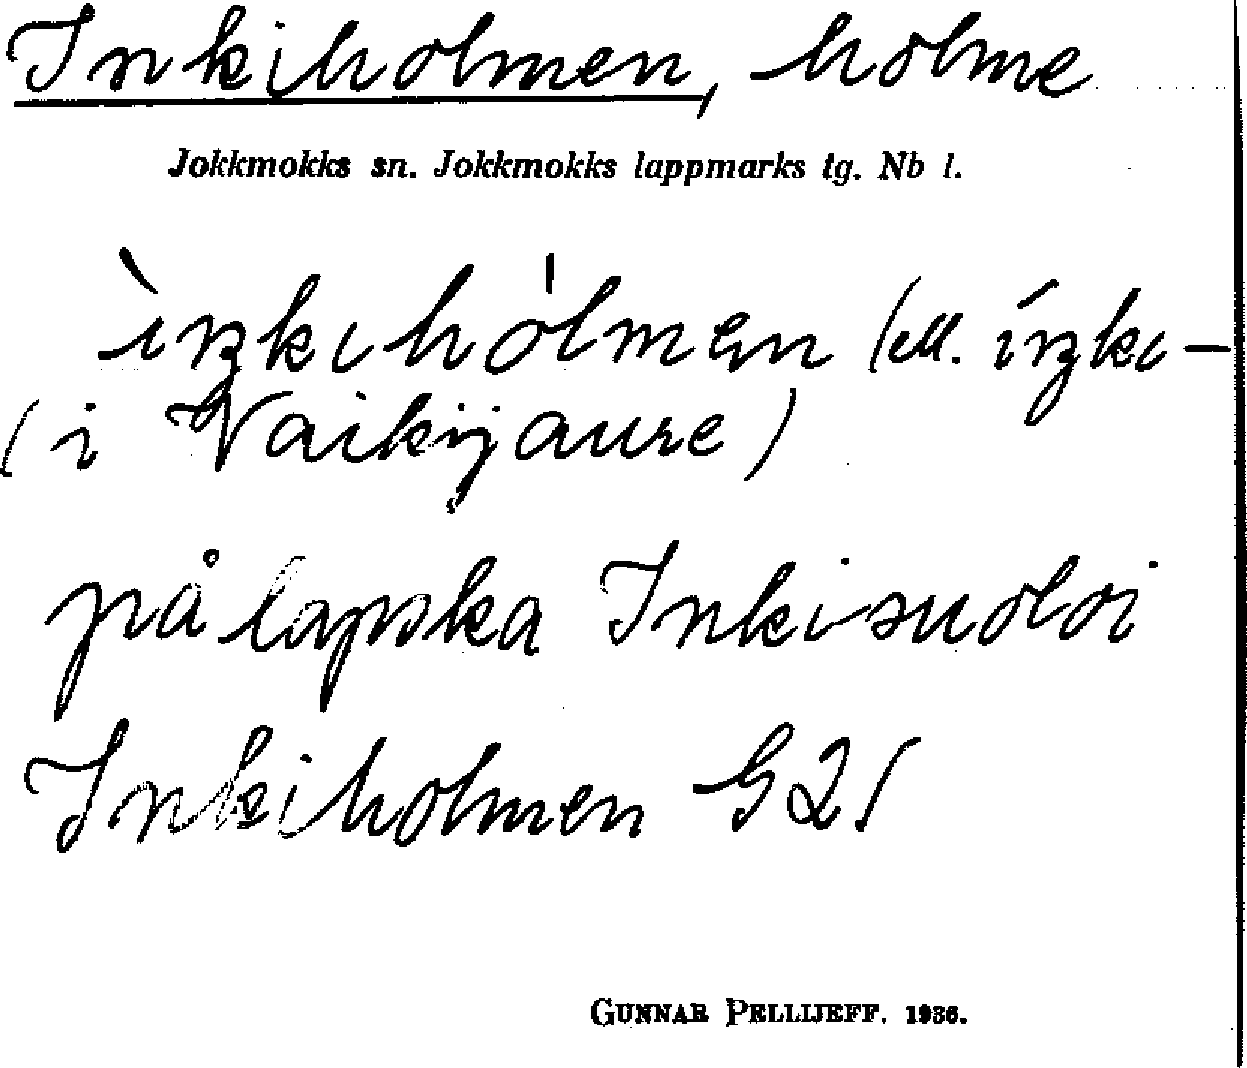 Inkiholmen, holme
Jokkmokks sn. Jokkmokks lappmarks tg. Nb l.
ìŋkιhólmən (ell. íŋkι-
(i Vaikijaure)
på lapska Inkisuoloi
Inkiholmen G21
GUNNAR PELLIJEFF. 1936.